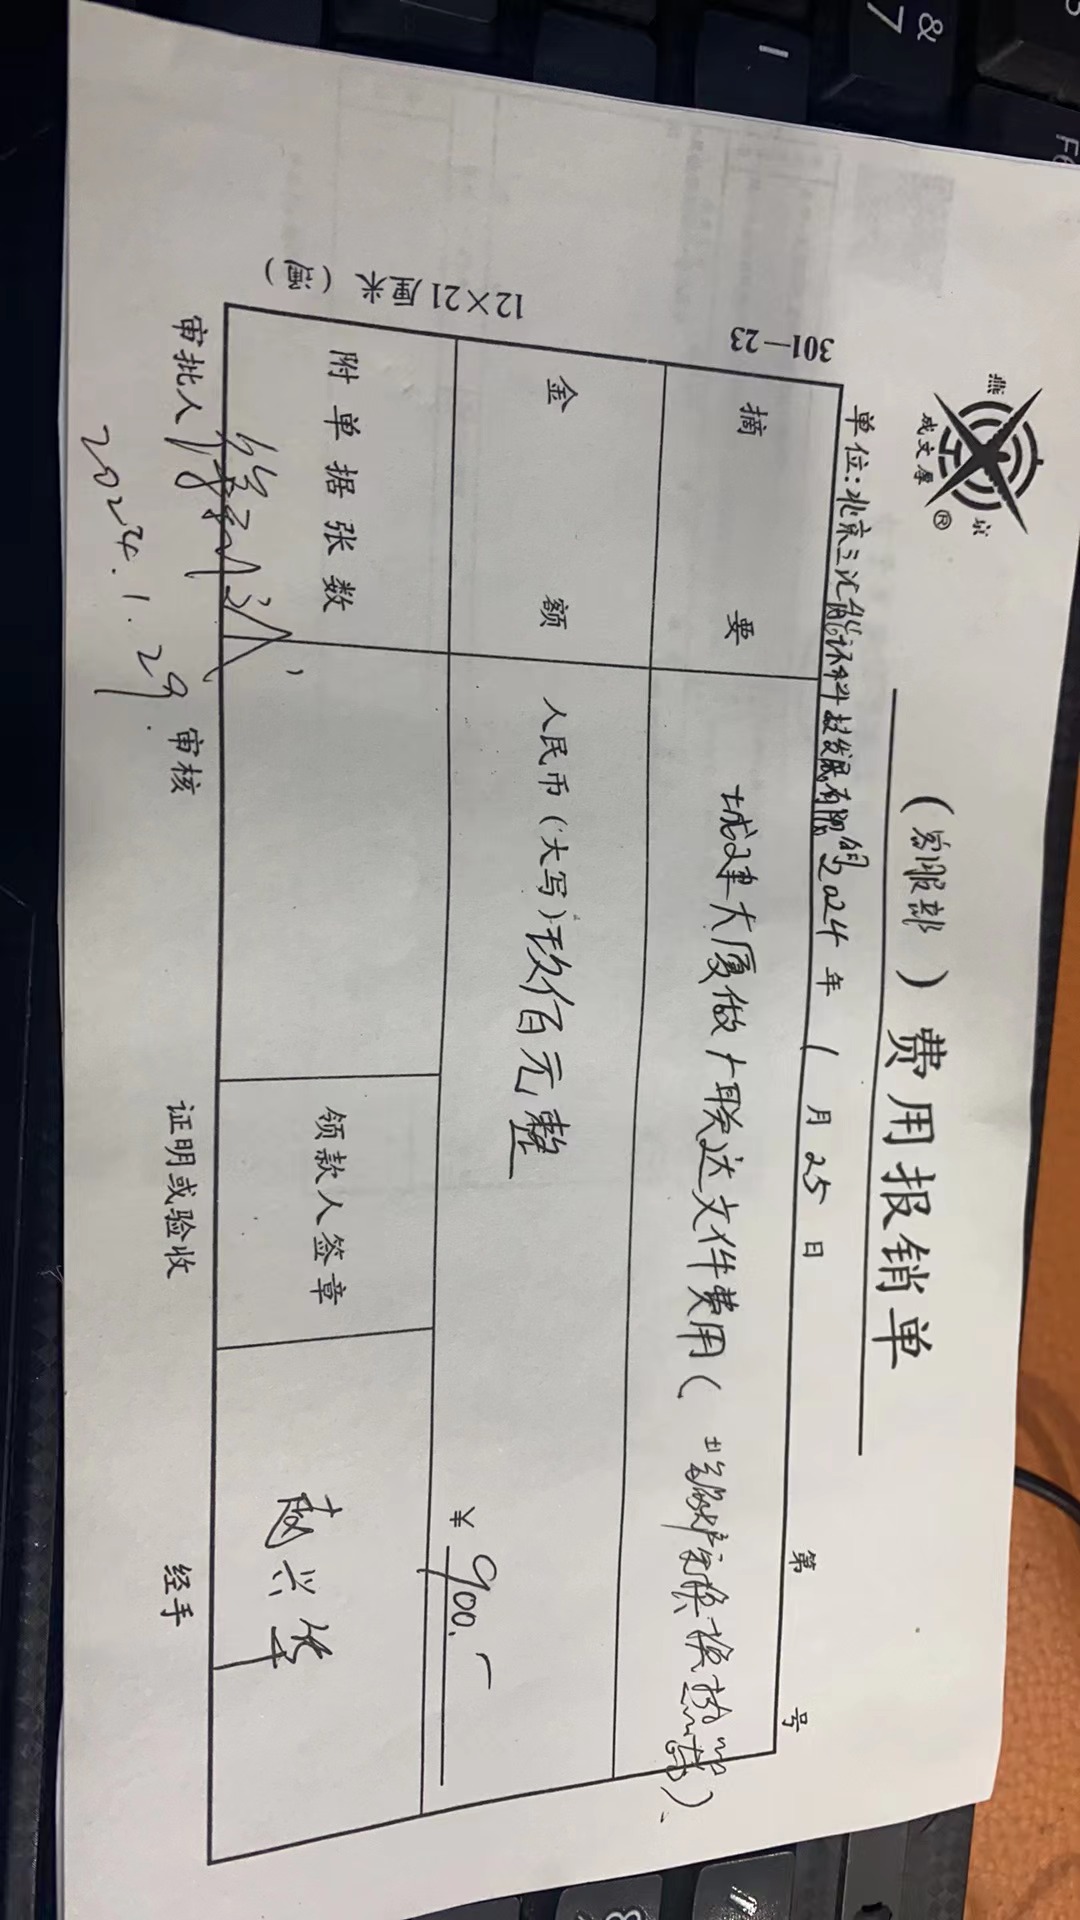 燕京
成文厚®
(客服部)费用报销单
单位:北京三汇能环科技发展有限公司 2024年1月25日 第 号
301—23
摘要 城建大厦做广联达文件费用( 锅炉房换换热器)
金额 人民币(大写)玖佰元整 ¥900.—
12×21厘米
附单据张数 领款人签章
审批人 审核 证明或验收 经手
2024.1.29.
&
7